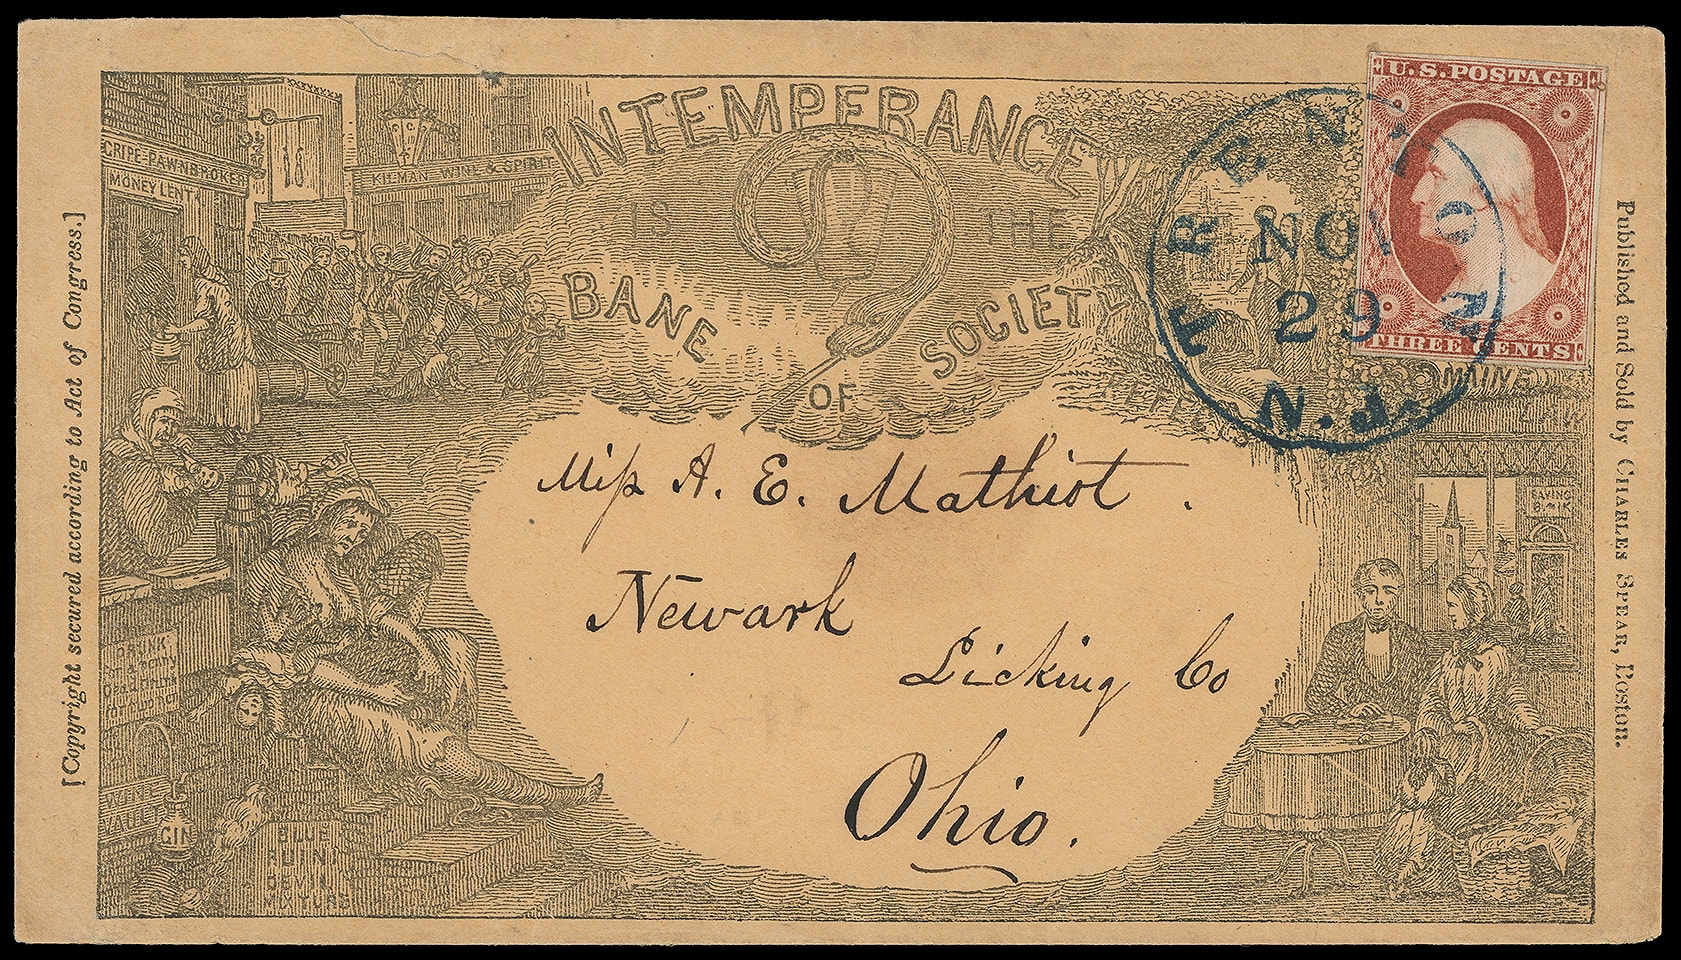 [Copyright secured according to Act of Congress.]
Published and Sold by CHARLES SPEAR, Boston.
INTEMPERANCE
IS THE
BANE OF SOCIETY
GRIPE-PAWNBROKER
MONEY LENT
KILMAN WINE & SPIRIT
U.S. POSTAGE
THREE CENTS
TRENTON
NOV
29
N.J.
MAINE
SAVING
BANK
Miss A. E. Mathiot.
Newark
Licking Co
Ohio.
DRUNK
for a penny
Dead Drunk
WINE
VAULT
GIN
BLUE
RUIN
DEVIL
MIXTURE